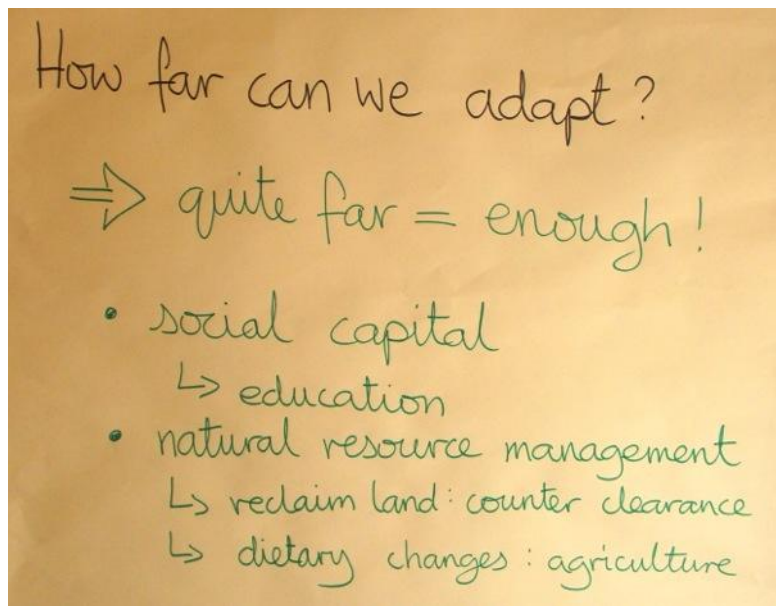 How far can we adapt?
⇒ quite far = enough!
• social capital
↳ education
• natural resource management
↳ reclaim land: counter clearance
↳ dietary changes: agriculture